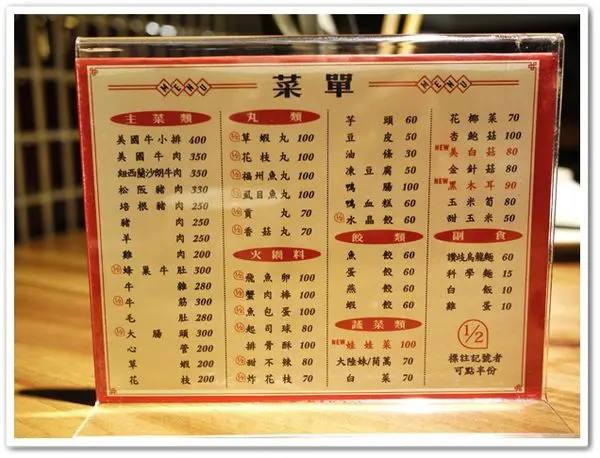 MENU 菜單 MENU
主菜類
美國牛小排 400
美國牛肉 350
紐西蘭沙朗牛肉 350
松阪豬肉 330
培根豬肉 250
豬肉 250
羊肉 250
雞肉 200
1/2 蜂巢牛肚 300
牛雜 280
1/2 牛筋 300
毛肚 280
1/2 大腸頭 300
心管 200
草蝦 200
花枝 200
丸類
1/2 草蝦丸 100
1/2 花枝丸 100
1/2 福州魚丸 100
1/2 虱目魚丸 100
1/2 貢丸 70
1/2 香菇丸 70
火鍋料
1/2 飛魚卵 100
1/2 蟹肉棒 100
1/2 魚包蛋 100
1/2 起司球 80
排骨酥 100
1/2 甜不辣 80
1/2 炸花枝 70
芋頭 60
豆皮 50
油條 30
凍豆腐 50
鴨腸 100
鴨血糕 60
1/2 水晶餃 60
餃類
魚餃 60
蛋餃 60
燕餃 60
蝦餃 60
蔬菜類
NEW 娃娃菜 100
大陸妹/茼萵 70
白菜 70
花椰菜 70
杏鮑菇 100
NEW 美白菇 80
金針菇 80
NEW 黑木耳 90
玉米筍 80
甜玉米 50
副食
讚岐烏龍麵 60
科學麵 15
白飯 10
雞蛋 10
1/2
標註記號者
可點半份